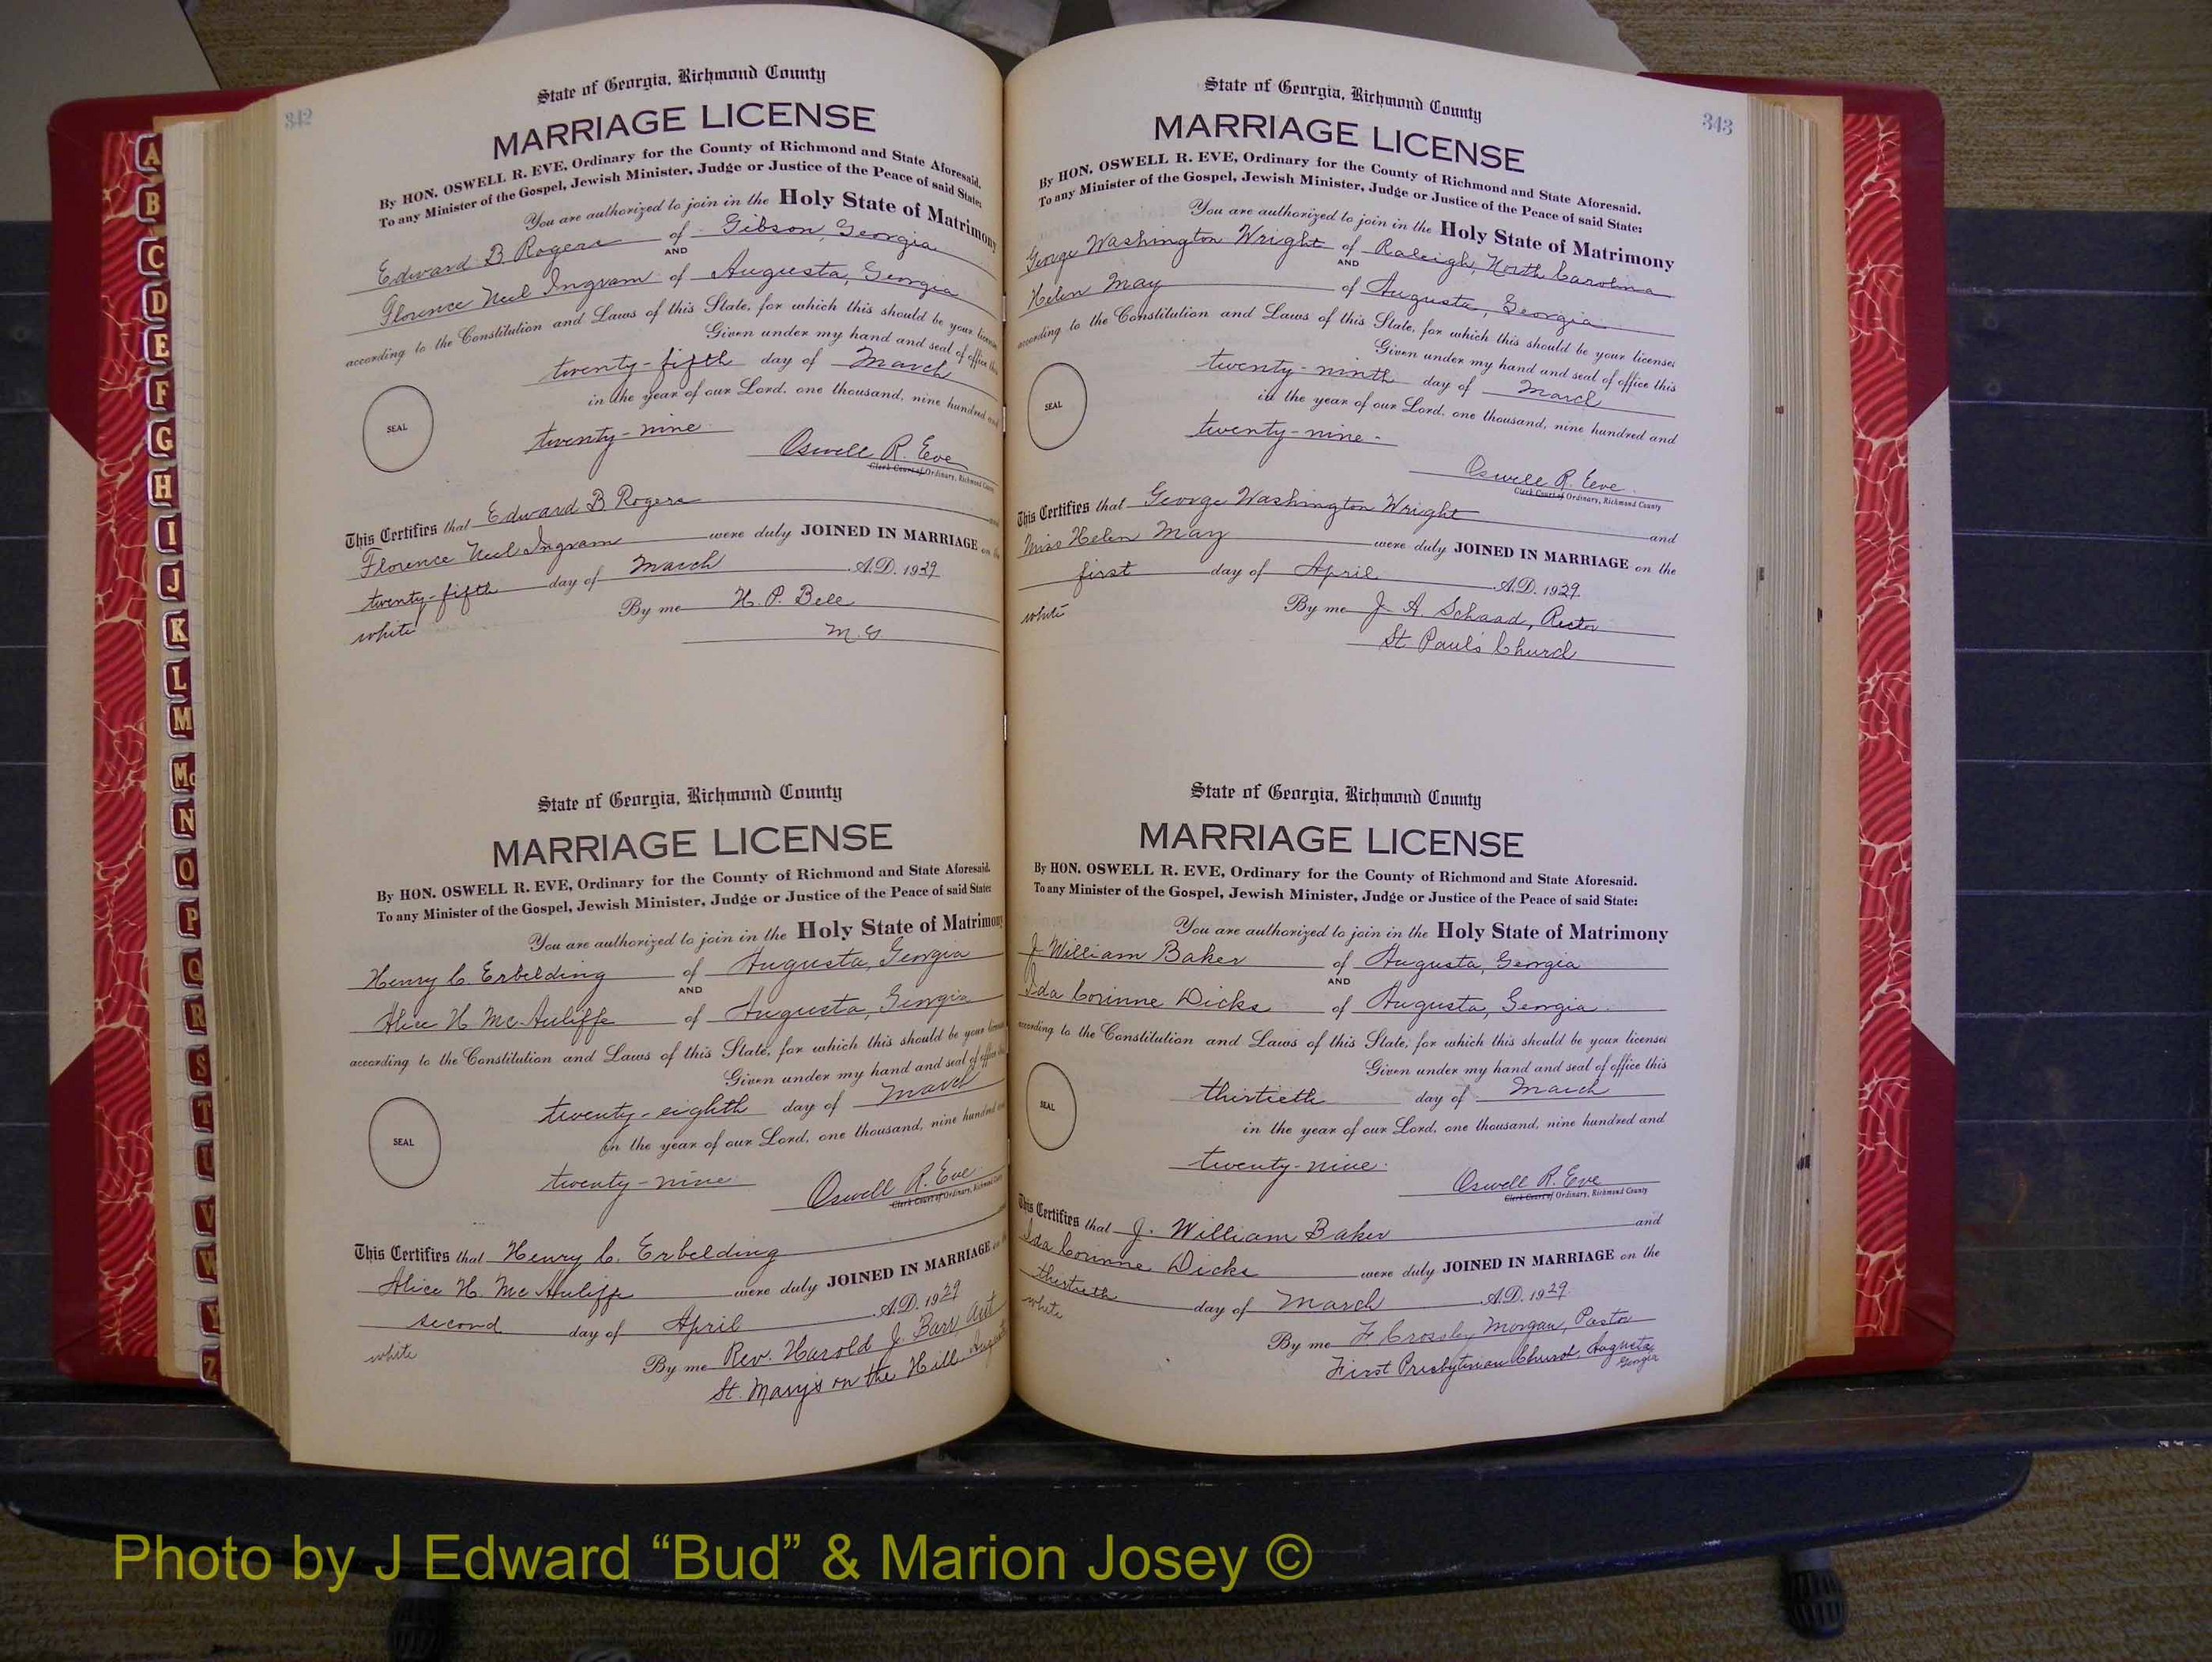 342
State of Georgia, Richmond County
MARRIAGE LICENSE
By HON. OSWELL R. EVE, Ordinary for the County of Richmond and State Aforesaid.
To any Minister of the Gospel, Jewish Minister, Judge or Justice of the Peace of said State:
You are authorized to join in the Holy State of Matrimony
Edward B Rogers of Gibson, Georgia
AND
Florence Neel Ingram of Augusta, Georgia
according to the Constitution and Laws of this State, for which this should be your license
Given under my hand and seal of office this
twenty-fifth day of March
in the year of our Lord, one thousand, nine hundred and
SEAL
twenty-nine
Oswell R. Eve
Clerk Court of Ordinary, Richmond County
This Certifies that Edward B Rogers
Florence Neel Ingram were duly JOINED IN MARRIAGE on the
twenty-fifth day of March A.D. 1929
white By me H. P. Bell
M. G
State of Georgia, Richmond County
MARRIAGE LICENSE
By HON. OSWELL R. EVE, Ordinary for the County of Richmond and State Aforesaid.
To any Minister of the Gospel, Jewish Minister, Judge or Justice of the Peace of said State:
You are authorized to join in the Holy State of Matrimony
Henry C. Erbelding of Augusta, Georgia
AND
Alice H McAuliffe of Augusta, Georgia
according to the Constitution and Laws of this State, for which this should be your license
Given under my hand and seal of office this
twenty-eighth day of March
in the year of our Lord, one thousand, nine hundred and
SEAL
twenty-nine
Oswell R. Eve
Clerk Court of Ordinary, Richmond County
This Certifies that Henry C. Erbelding
Alice H. McAuliffe were duly JOINED IN MARRIAGE on the
second day of April A.D. 1929
white By me Rev. Harold J. Barr, Asst
St. Mary's on the Hill Augusta
343
State of Georgia, Richmond County
MARRIAGE LICENSE
By HON. OSWELL R. EVE, Ordinary for the County of Richmond and State Aforesaid.
To any Minister of the Gospel, Jewish Minister, Judge or Justice of the Peace of said State:
You are authorized to join in the Holy State of Matrimony
George Washington Wright of Raleigh, North Carolina
AND
Helen May of Augusta, Georgia
according to the Constitution and Laws of this State, for which this should be your license:
Given under my hand and seal of office this
twenty-ninth day of March
in the year of our Lord, one thousand, nine hundred and
SEAL
twenty-nine-
Oswell R. Eve
Clerk Court of Ordinary, Richmond County
This Certifies that George Washington Wright and
Miss Helen May were duly JOINED IN MARRIAGE on the
first day of April A.D. 1929.
white By me J A. Schaad, Rector
St Paul's Church
State of Georgia, Richmond County
MARRIAGE LICENSE
By HON. OSWELL R. EVE, Ordinary for the County of Richmond and State Aforesaid.
To any Minister of the Gospel, Jewish Minister, Judge or Justice of the Peace of said State:
You are authorized to join in the Holy State of Matrimony
J William Baker of Augusta, Georgia
AND
Ida Corinne Dicks of Augusta, Georgia
according to the Constitution and Laws of this State, for which this should be your license:
Given under my hand and seal of office this
thirtieth day of March
in the year of our Lord, one thousand, nine hundred and
SEAL
twenty-nine
Oswell R. Eve
Clerk Court of Ordinary, Richmond County
This Certifies that J. William Baker and
Ida Corinne Dicks were duly JOINED IN MARRIAGE on the
thirtieth day of March A.D. 1929.
white By me F. Crossley Morgan, Pastor
First Presbyterian Church, Augusta
Georgia
A
B
C
D
E
F
G
H
I
J
K
L
M
Mc
N
O
P
Q
R
S
T
U
V
W
Y
Z
Photo by J Edward “Bud” & Marion Josey ©